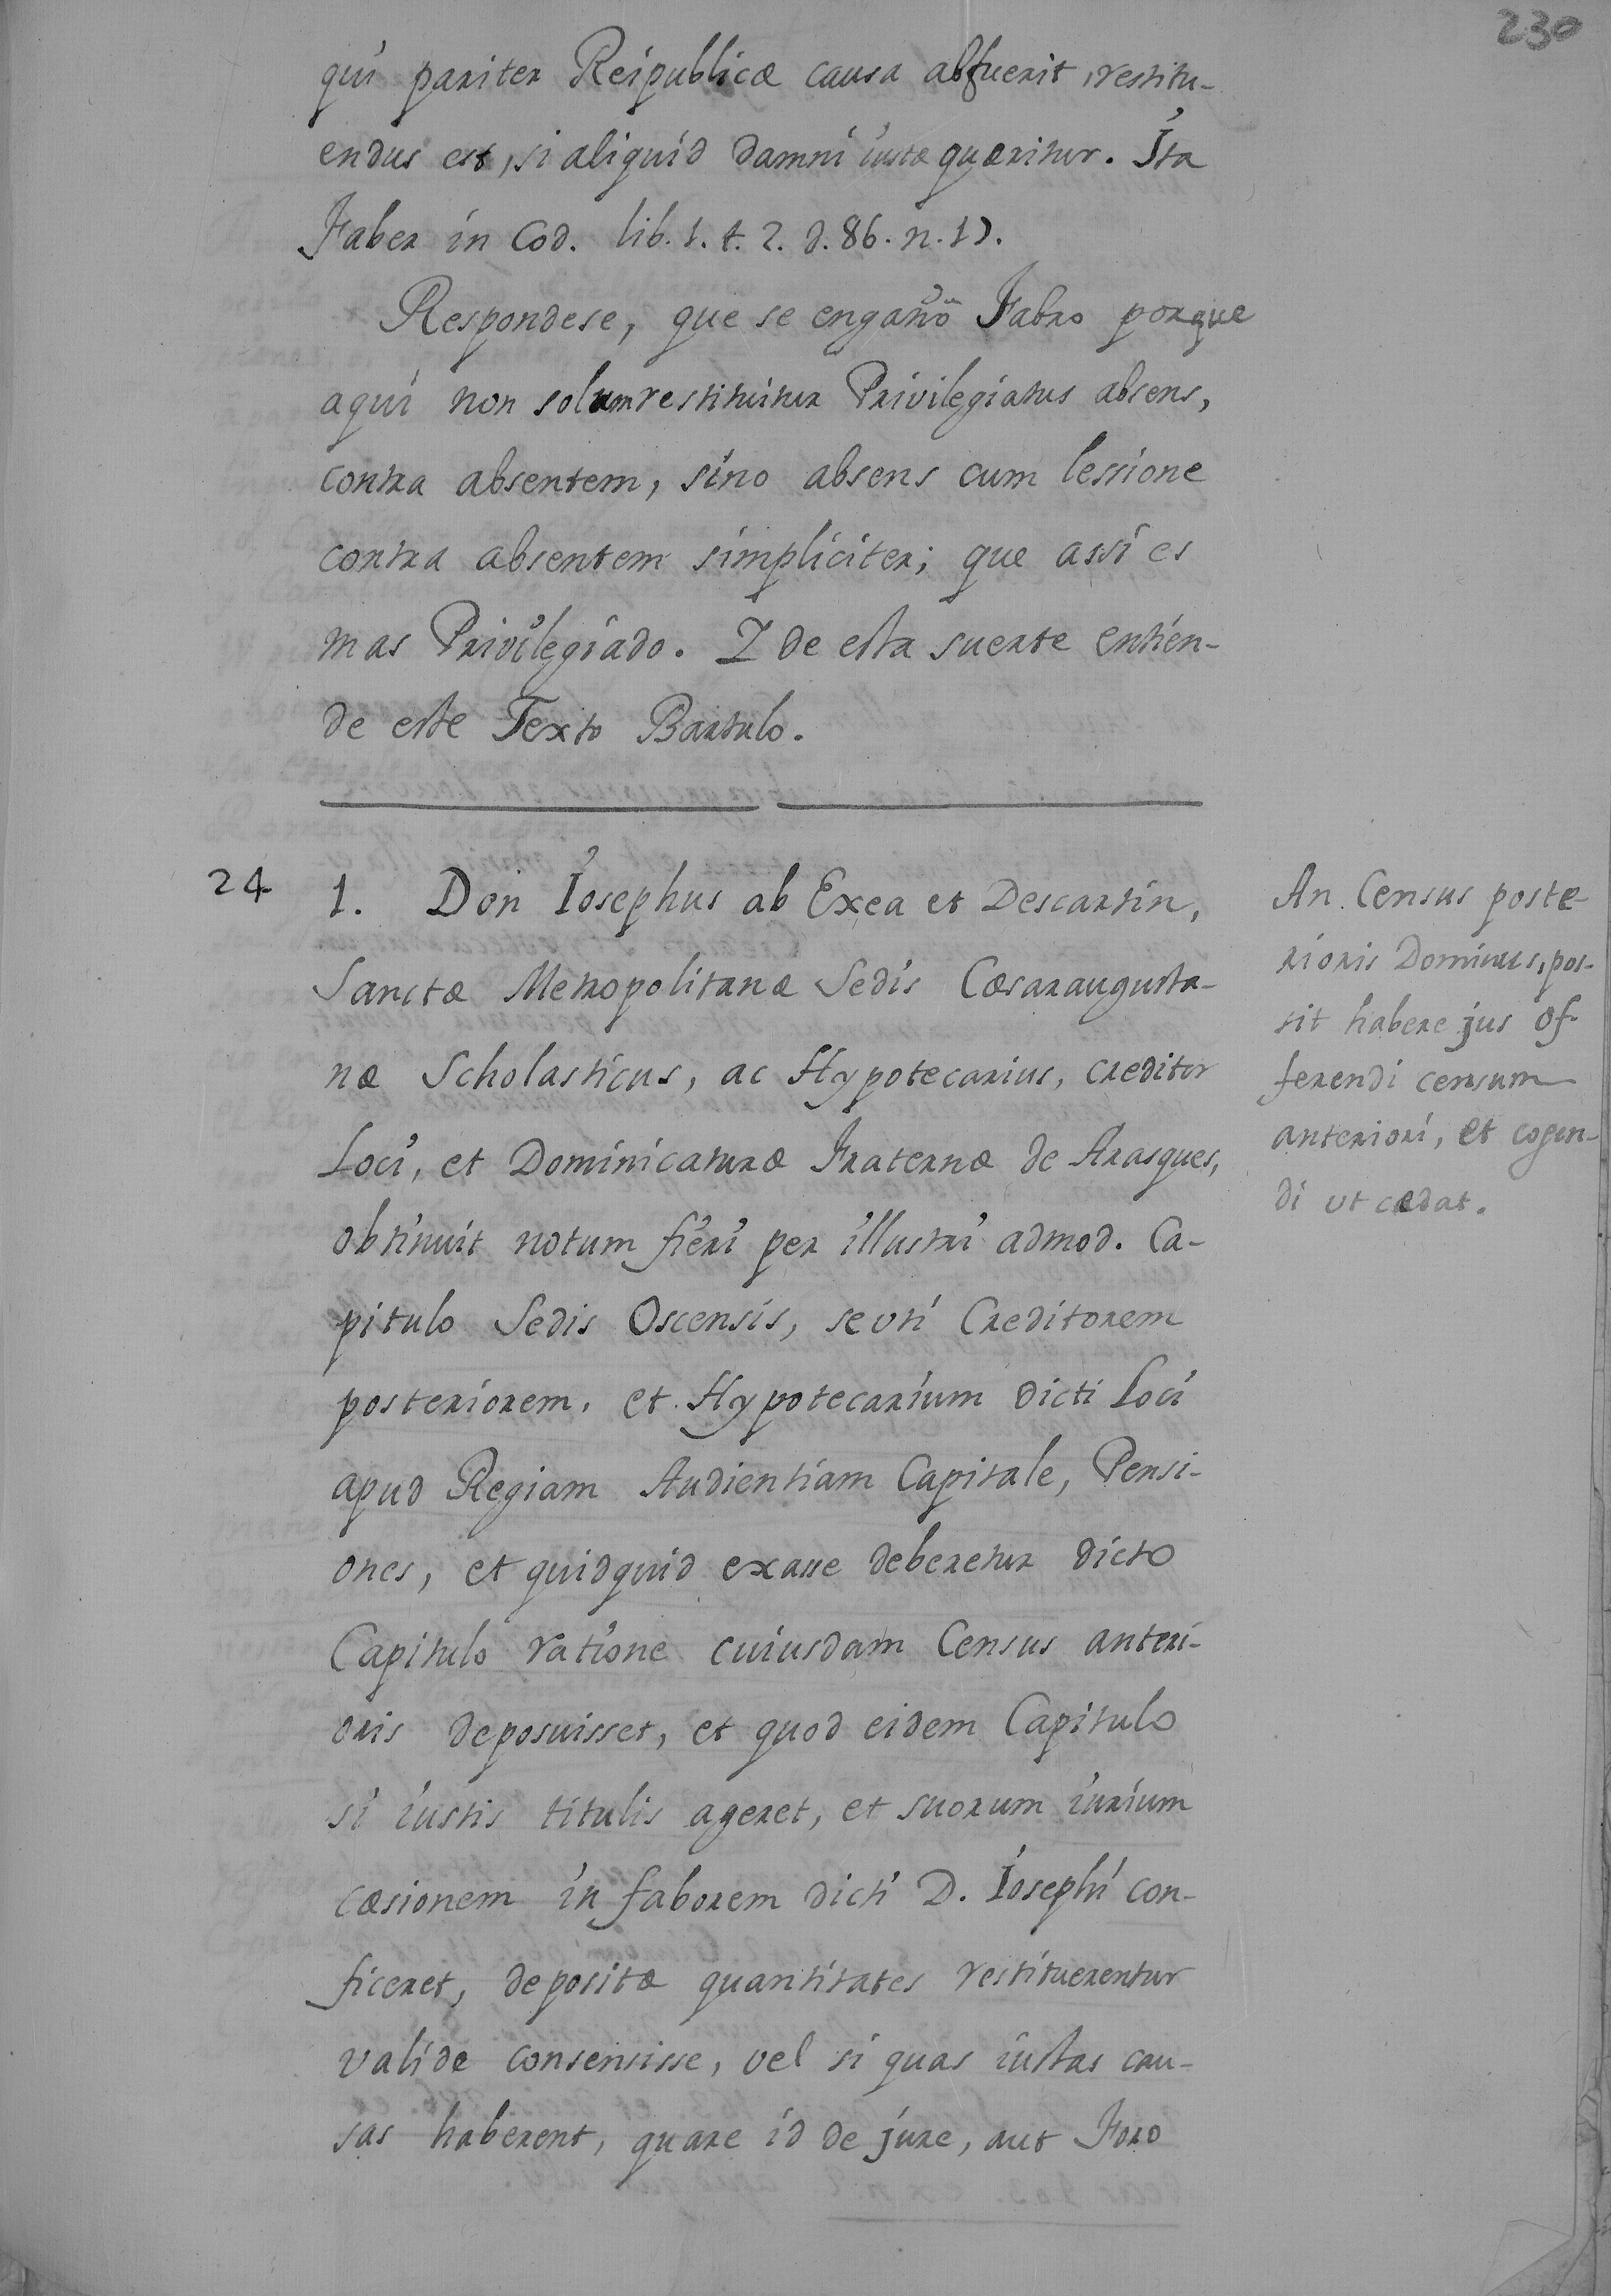 230
qui pariter Reipublicæ causa abfuerit, restitu-
endus est, si aliquid damni iuste quæritur. Ita
Faber in Cod. lib. 1. t. 2. d. 86. n. 1).
Respondese, que se engañò Fabro porque
aqui non solum restituitur Privilegiatus absens,
contra absentem, sino absens cum lessione
contra absentem simpliciter; que assi es
mas Privilegiado. I de esta suerte entien-
de este Texto Bartulo.
24 1. Don Iosephus ab Exea et Descartin,
Sanctæ Metropolitanæ Sedis Cæsaraugusta-
næ Scholasticus, ac Hypotecarius, creditor
Loci, et Dominicaturæ Fraternæ de Arasques,
obtinuit notum fieri per illustri admod. Ca-
pitulo Sedis Oscensis, se uti Creditorem
posteriorem, et Hypotecarium dicti Loci
apud Regiam Audientiam Capitale, Pensi-
ones, et quidquid exane deberetur dicto
Capitulo ratione cuiusdam Census anteri-
oris deposuisset, et quod eidem Capitulo
si iustis titulis ageret, et suorum iurium
cæsionem in faborem dicti D. Iosephi con-
ficeret, depositæ quantitates restituerentur
valide consensisse, vel si quas iustas cau-
sas haberent, quare id de jure, aut Foro
An Census poste-
rioris Dominus, pos-
sit habere jus of-
ferendi censum
anteriori, et cogen-
di ut cædat.